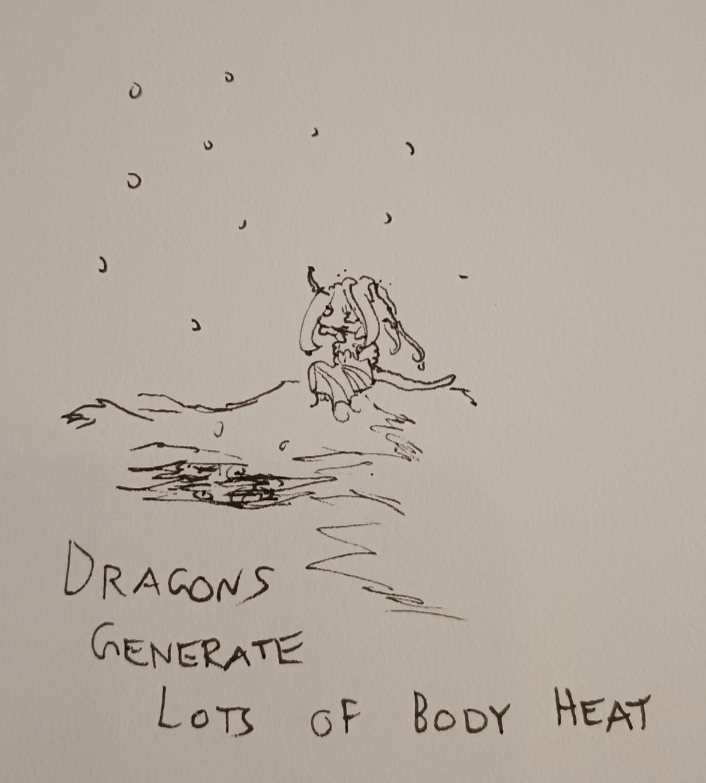 DRAGONS
GENERATE
LOTS OF BODY HEAT